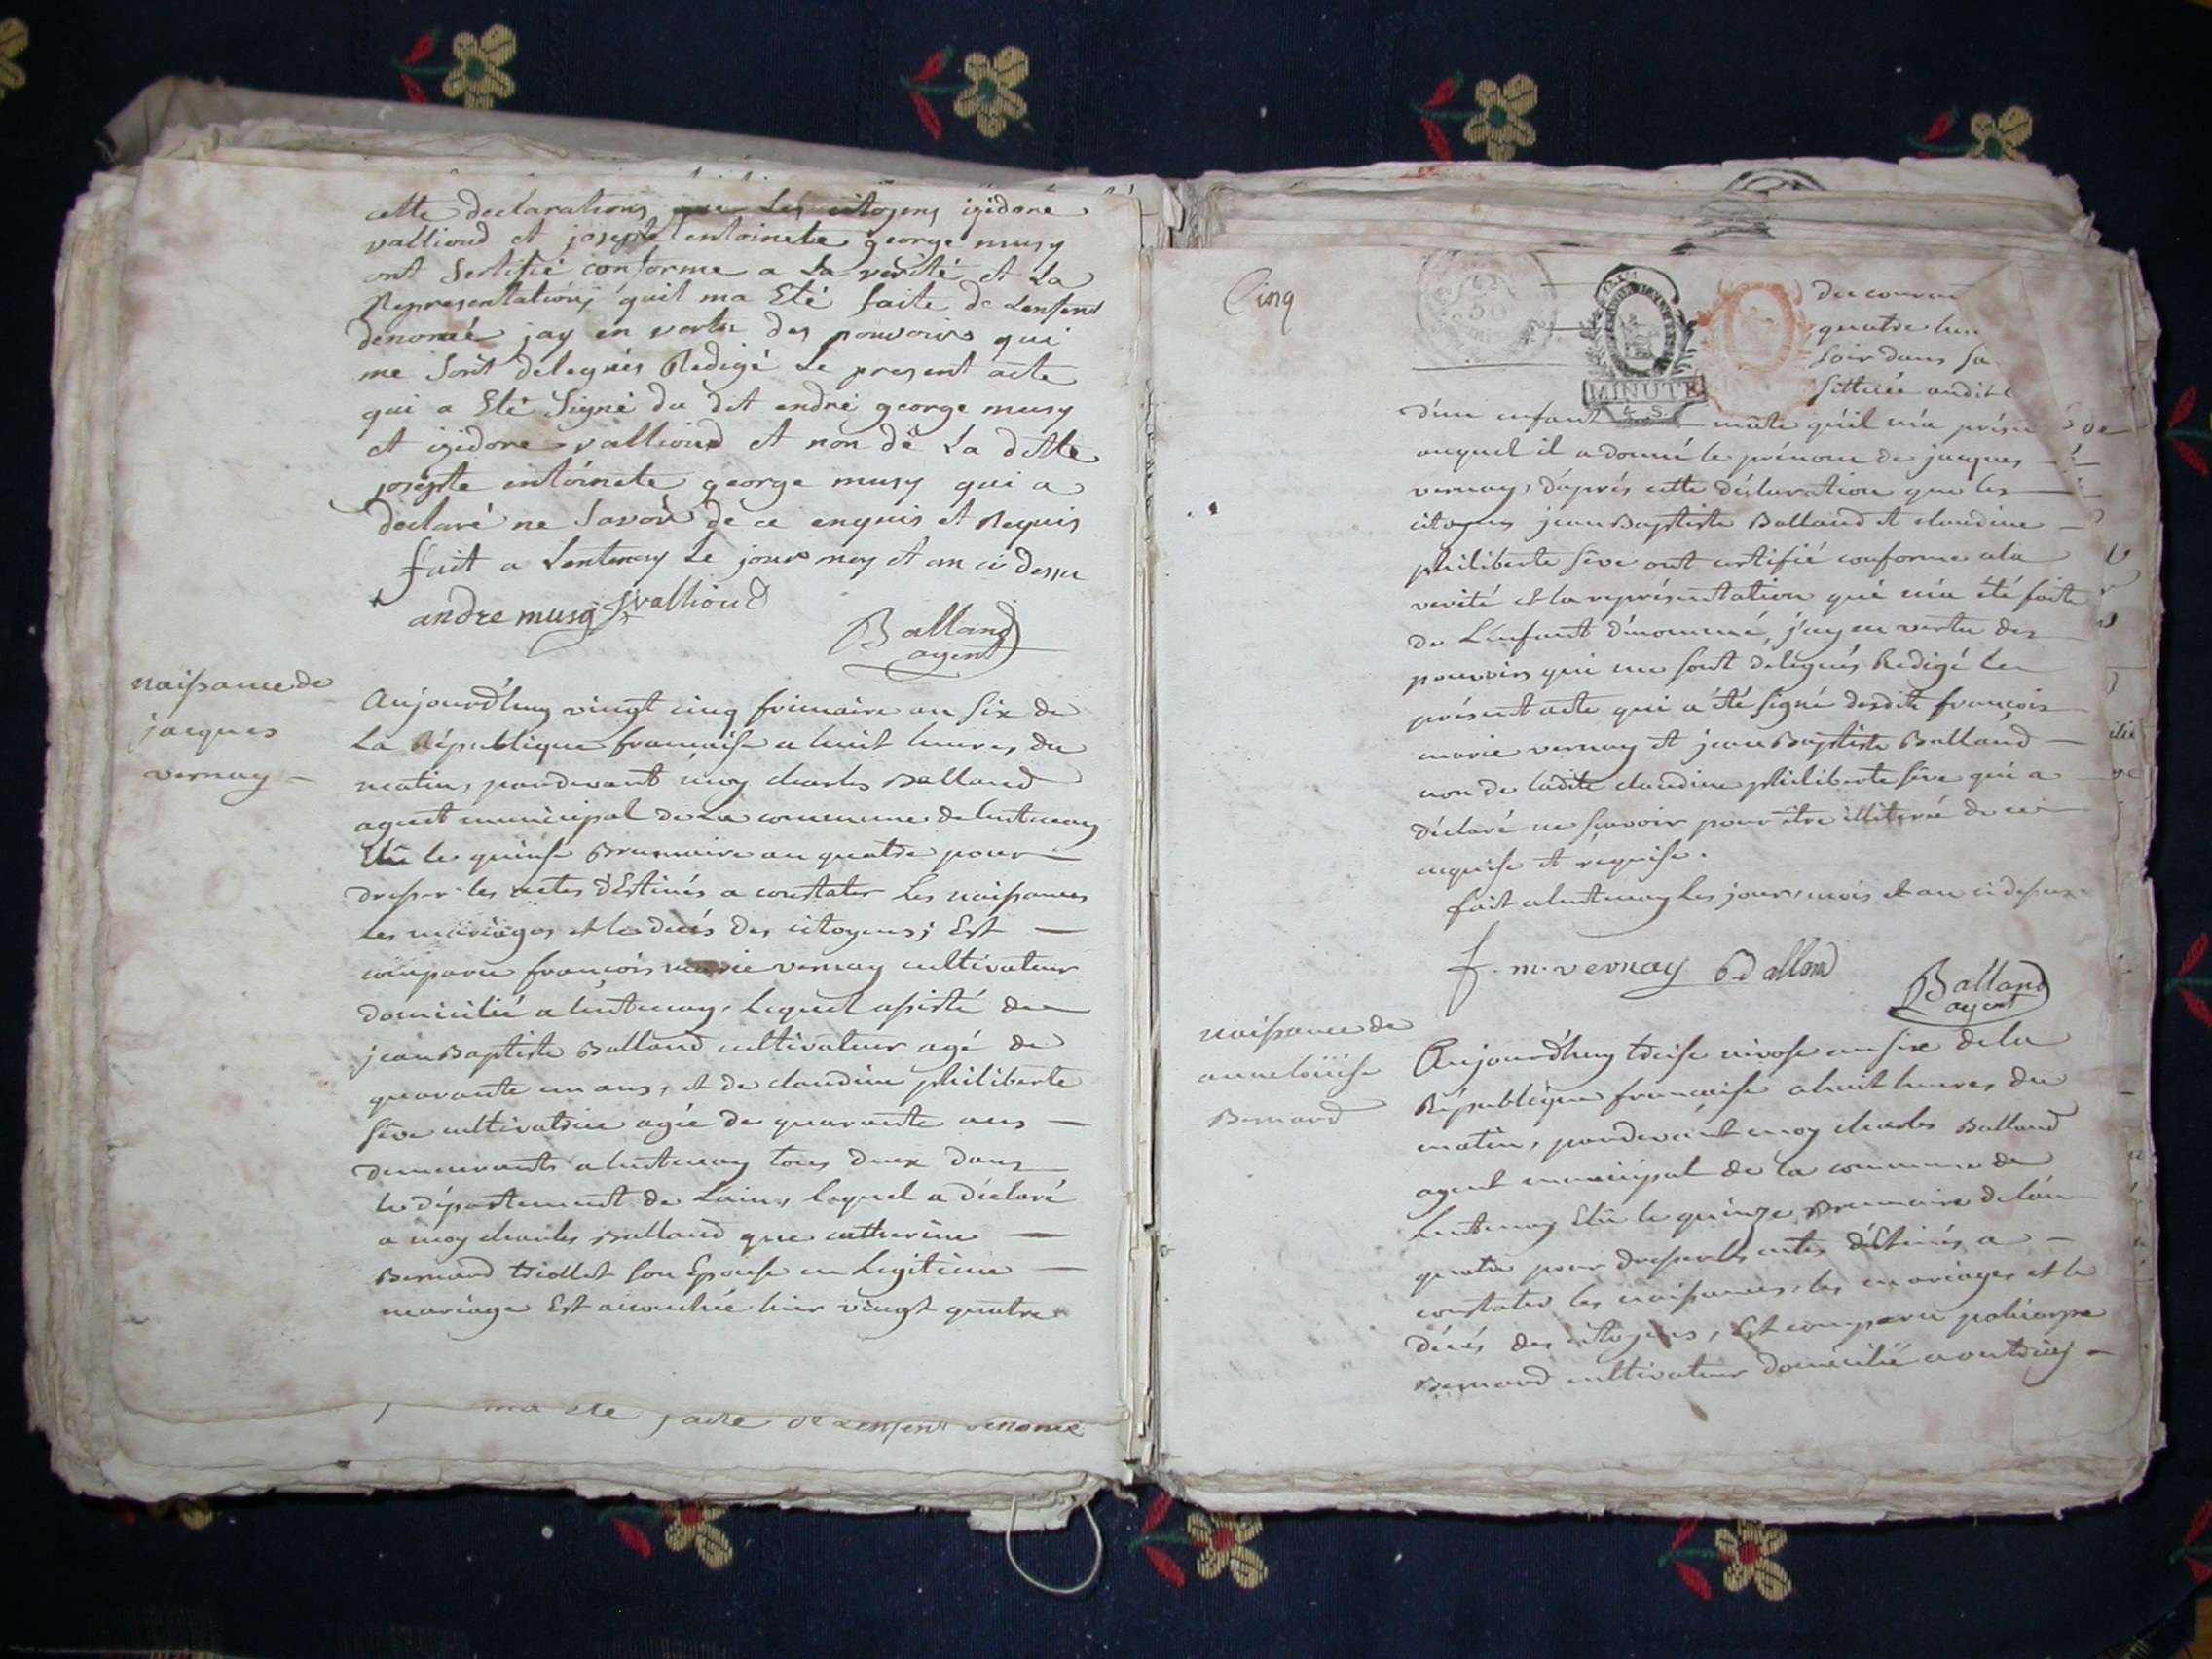 cette declarations que Les citoyens izidore
vallioud et josepte entoinete george musy
ont Sertifié conforme a La verité et La
Representations quil ma Eté faite de Lenfent
denomé jay en vertu des pouvoirs qui
me Sont delegués Redigé Le present acte
qui a Eté Signé du dit endré george musy
et izidore vallioud et non de La ditte
josepte entoinete george musy qui a
declaré ne Savoir de ce enquis et Requis
fait a Lentenay Le jour moy et an ci dessu
andre musy vallioud
Balland
agent
naissance de
jacques
vernay
Aujourd'huy vingt cinq frimaire an six de
La République française a huit heures du
matin, pardevant moy charles Balland
agent municipal de La commune de lentenay
Elû le quinse Brumaire an quatre pour
dresser les actes dEstinés a constater Les naissances
Les mariages et les decés des citoyens; Est
comparu françois marie vernay cultivateur
domicilié a lentenay, lequel assisté de
jean Baptiste Balland cultivateur agé de
quarante un ans, et de claudine philiberte
sêve cultivatrice agée de quarante ans
demeurants a lentenay tous deux dans
le département de Lain, lequel a déclaré
a moy charles Balland que catherine
Bernard triollet son Epouse en Legitime
mariage Est accouchée hier vingt quatre
ma ete faite de Lenfent denomé
Cinq
50
MINUTE
4. S.
du couran
quatre heu
soir dans sa
sittuée audit
d'un enfant mâle qu'il m'a présen
auquel il a donné le prénom de jacques
vernay, d'après cette déclaration que les
citoyens jean Baptiste Balland et claudine
philiberte sêve ont certifié conforme a la
verité et la représentation qui m'a été faite
de L'enfant dénommé, j'ay en vertu des
pouvoirs qui me sont délegués Redigé le
présent acte qui a été signé desdits françois
marie vernay et jean Baptiste Balland
non de ladite claudine philiberte sêve qui a
déclaré ne sçavoir pour être illiterée de ce
enquise et requise.
fait a lentenay les jour, mois et an ci dessus
f. m. vernay Balland
Balland
agent
naissance de
anne loüise
Bernard
Aujourd'huy treise nivose an six de la
République française a huit heures du
matin, pardevant moy charles Balland
agent municipal de la commune de
Lentenay Elû le quinze Brumaire de l'an
quatre pour dresser les actes déstinés a
constater les naissances, les mariages et le
décés des citoyens, Est comparu policarpe
Bernard cultivateur domicilié a outriaz